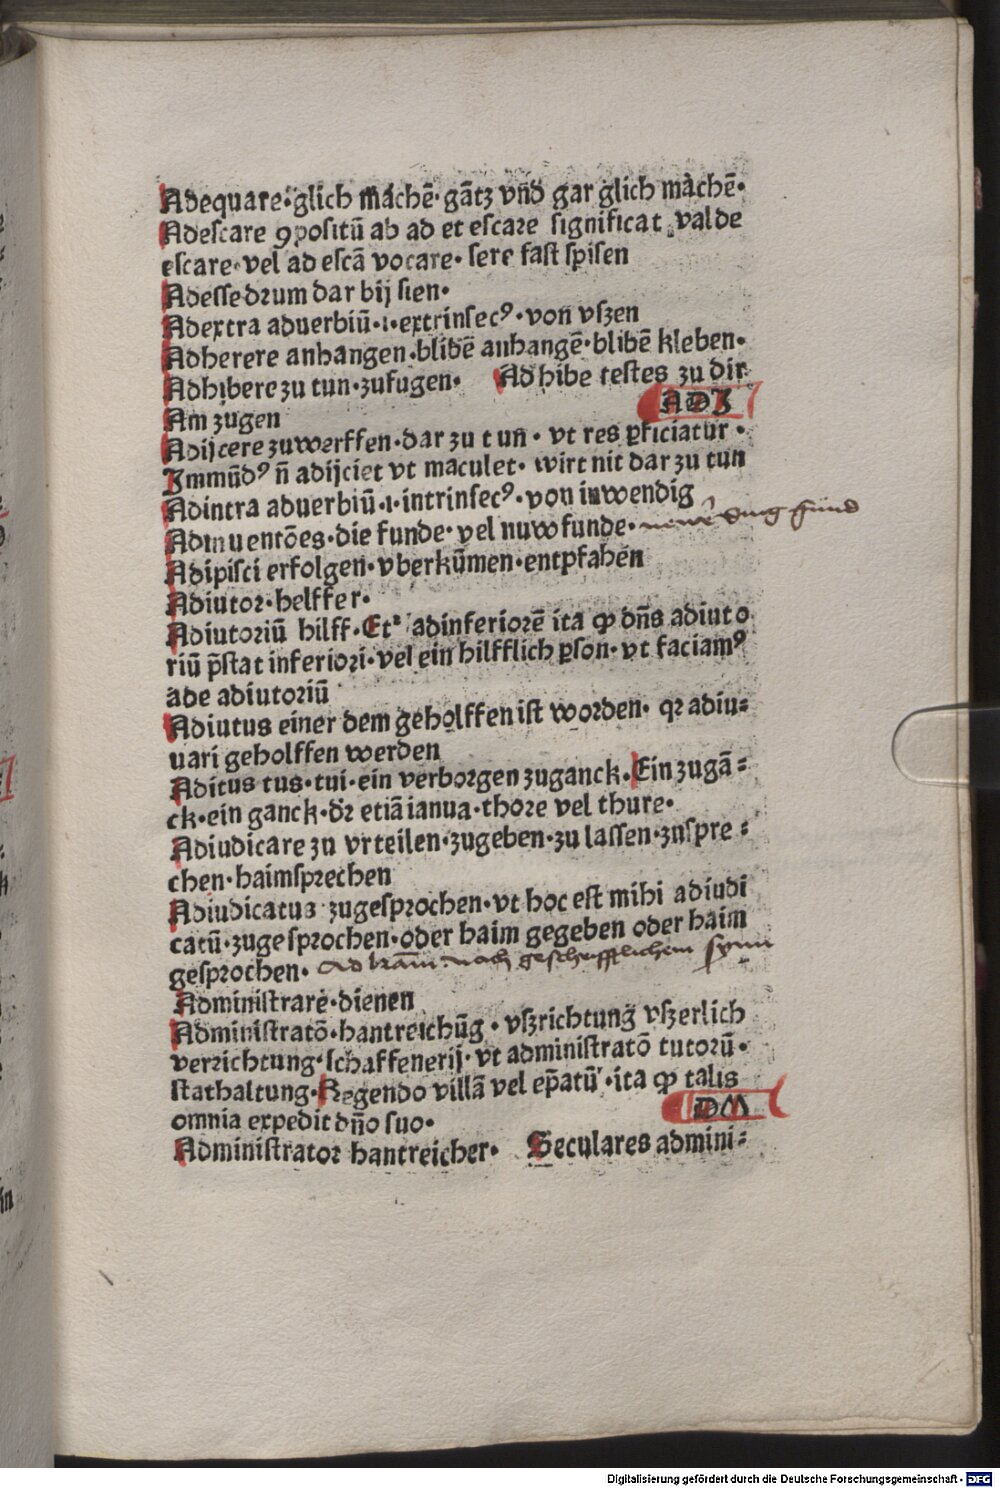 Adequare·glich machē·gātz vn̄d gar glich machē·
Adescare ꝯpositū ab ad et escare significat valde
escare·vel ad escā vocare·sere fast spisen
Adesse drum dar bij sien·
Adextra aduerbiū·i·extrinsecꝰ·von vszen
Adherere anhangen·blibē anhangē·blibē kleben·
Adhibere zu tun·zufugen· Adhibe testes zu dir
Am zugen ADJ
Adijcere zuwerffen·dar zu tun̄· vt res ꝑficiatur·
Jmmūdꝰ n̄ adijciet vt maculet· wirt nit dar zu tun
Adintra aduerbiū·i·intrinsecꝰ·von inwendig
Adinuentōes·die funde·vel nuw funde· newe ding fund
Adipisci erfolgen·vberkūmen·entpfahen
Adiutor·helffer·
Adiutoriū hilff·Et ad inferiorē ita ꝙ dn̄s adiuto
riū p̄stat inferiori·vel ein hilfflich ꝑson·vt faciamꝰ
ade adiutoriū
Adiutus einer dem geholffen ist worden· qꝛ adiu⸗
uari geholffen werden
Aditus tus·tui·ein verborgen zuganck·Ein zugā⸗
ck·ein ganck·dr̄ etiā ianua·thore vel thure·
Adiudicare zu vrteilen·zugeben·zu lassen·zuspre⸗
chen·haimsprechen
Adiudicatus zugesprochen·vt hoc est mihi adiudi
catū·zugesprochen·oder haim gegeben oder haim
gesprochen· nach
Administrare·dienen
Administratō·hantreichūg·vszrichtung vszerlich
verrichtung·schaffenerij·vt administratō tutorū·
stathaltung·Regendo villā vel ep̄atū·ita ꝙ talis
omnia expedit dn̄o suo· DM
Administrator hantreicher· Seculares admini⸗
Digitalisierung gefördert durch die Deutsche Forschungsgemeinschaft - DFG